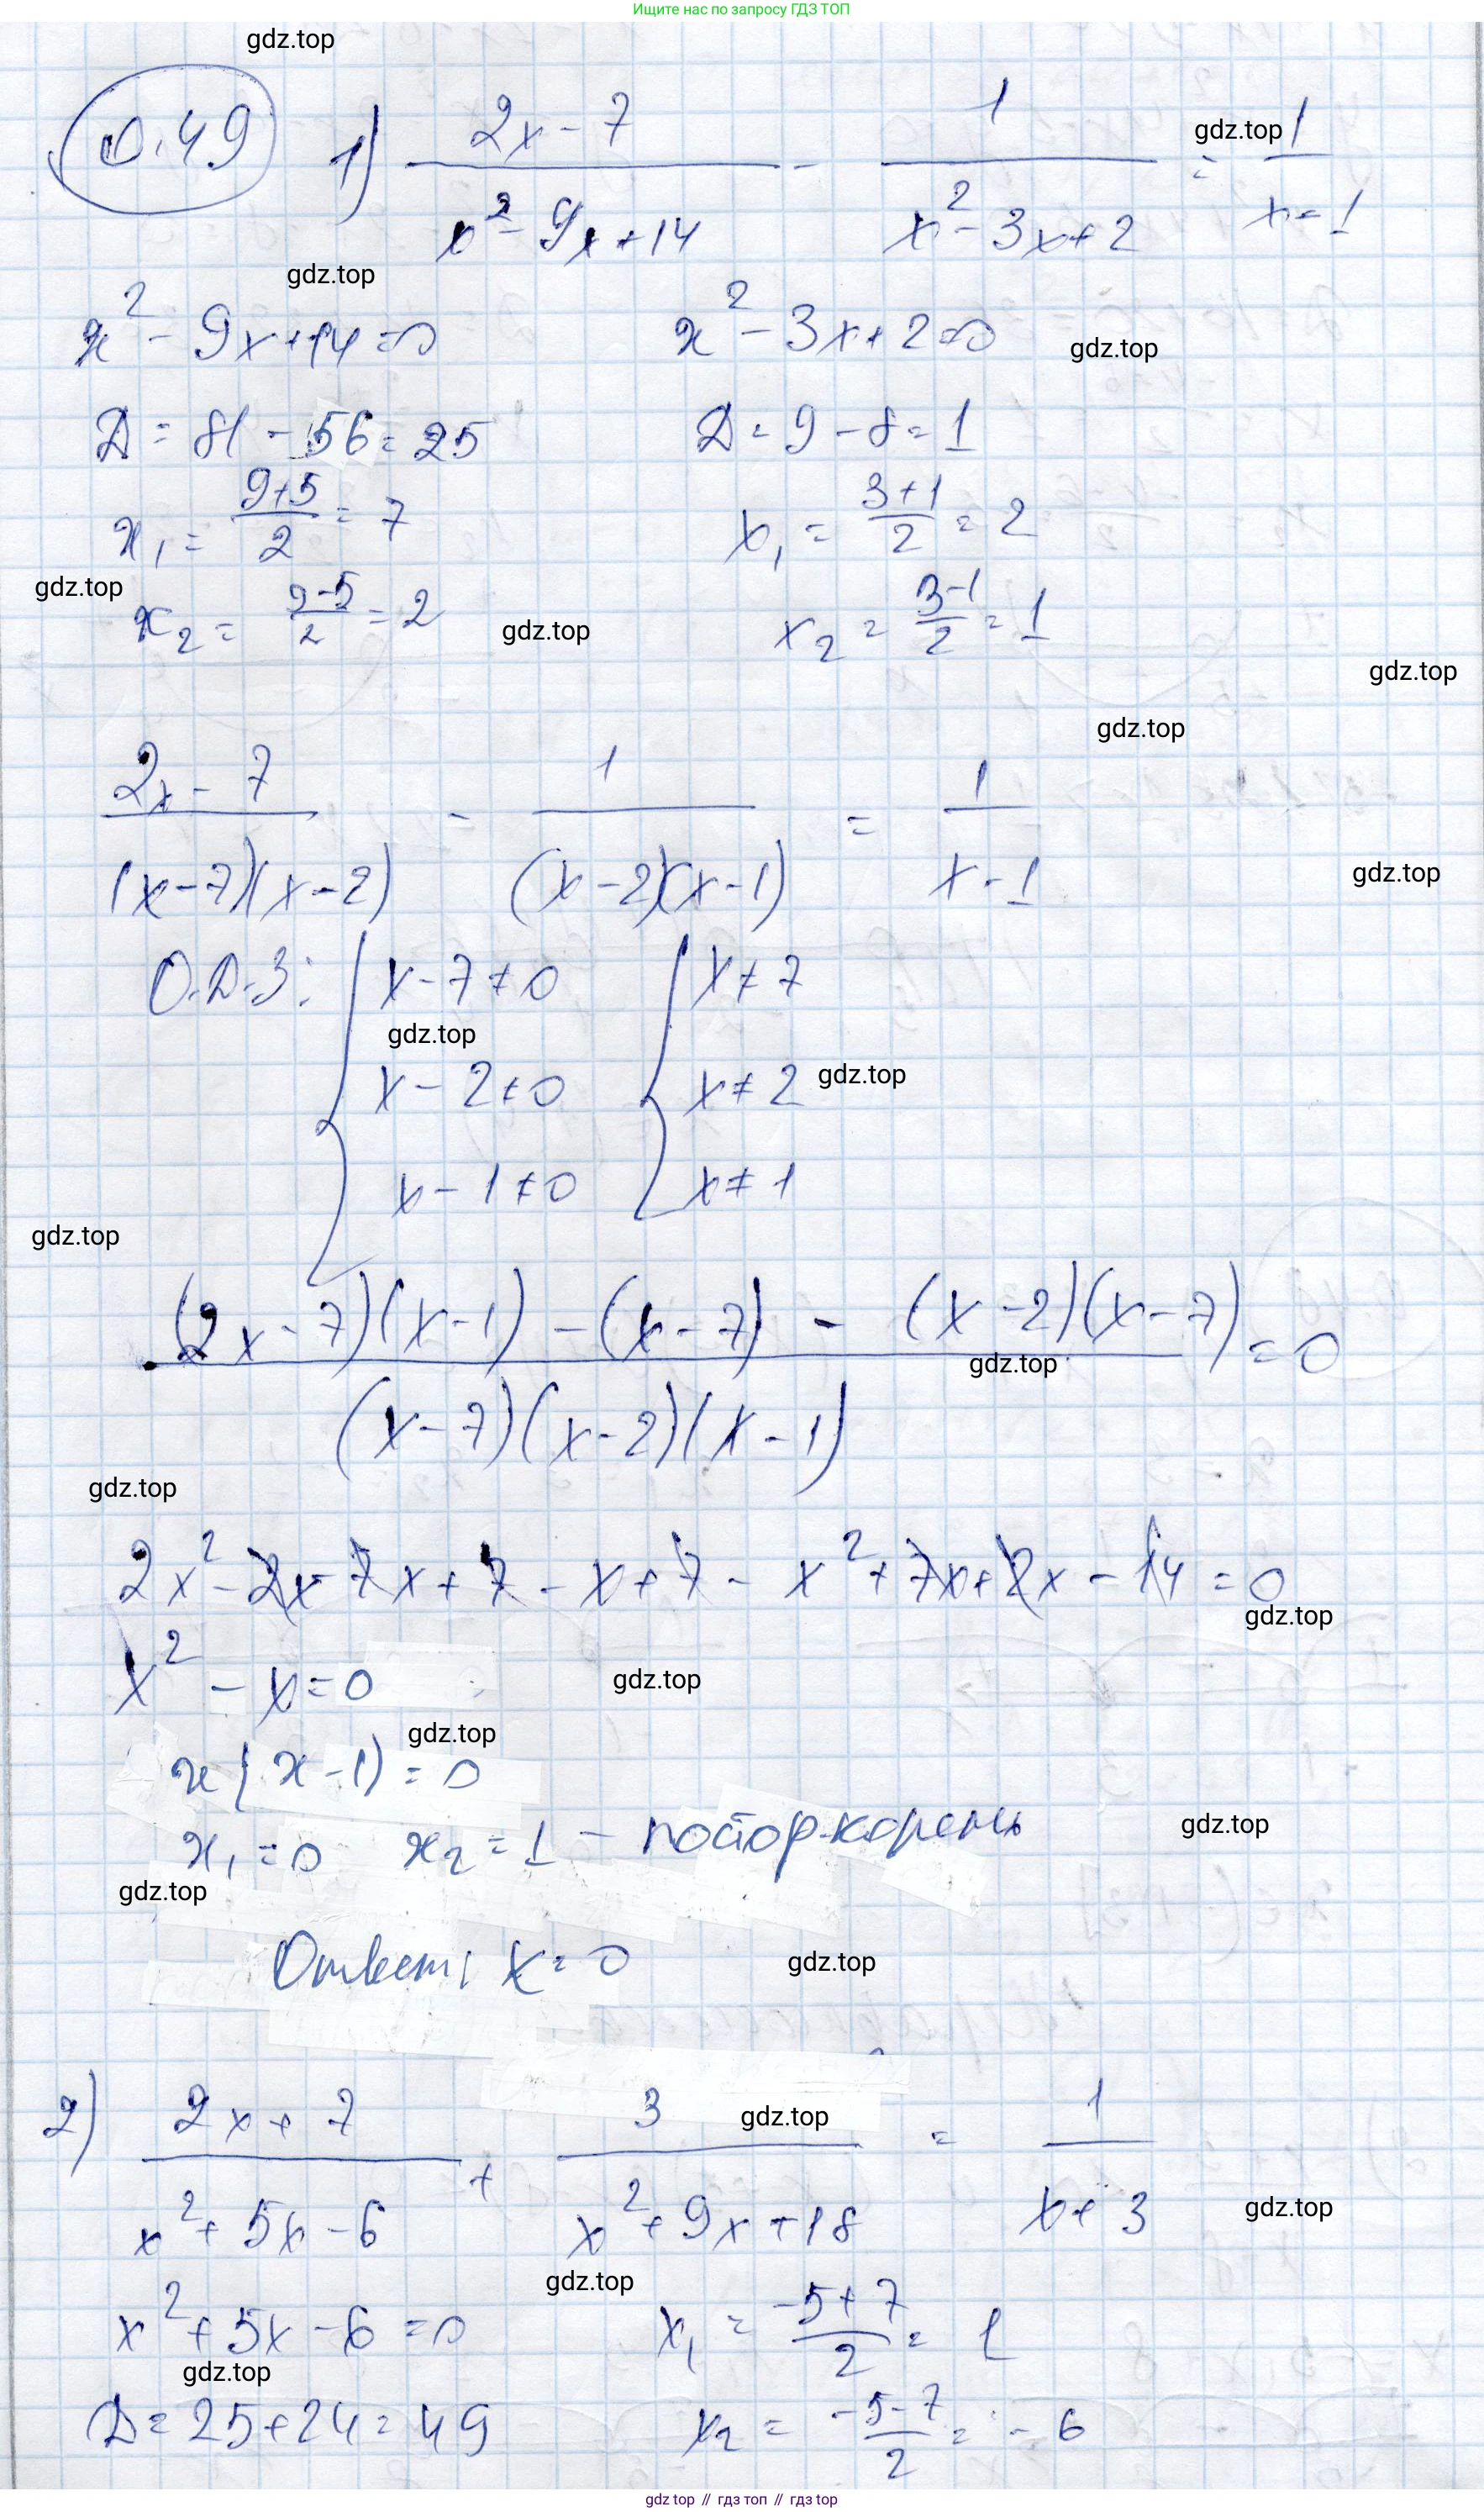 Ищите нас по запросу ГДЗ ТОП
gdz.top
0.49 1) (2x - 7)/(x² - 9x + 14) - 1/(x² - 3x + 2) = 1/(x - 1)
gdz.top
gdz.top
x² - 9x + 14 = 0 x² - 3x + 2 = 0
gdz.top
D = 81 - 56 = 25 D = 9 - 8 = 1
x₁ = (9+5)/2 = 7 x₁ = (3+1)/2 = 2
gdz.top
x₂ = (9-5)/2 = 2 x₂ = (3-1)/2 = 1
gdz.top
gdz.top
gdz.top
(2x - 7)/((x-7)(x-2)) - 1/((x-2)(x-1)) = 1/(x-1)
gdz.top
О.Д.З: { x - 7 ≠ 0 { x ≠ 7
gdz.top
x - 2 ≠ 0 x ≠ 2
gdz.top
x - 1 ≠ 0 x ≠ 1
gdz.top
((2x-7)(x-1) - (x-7) - (x-2)(x-7))/((x-7)(x-2)(x-1)) = 0
gdz.top
gdz.top
2x² - 2x - 7x + 7 - x + 7 - x² + 7x + 2x - 14 = 0
gdz.top
x² - x = 0
gdz.top
gdz.top
x(x-1) = 0
x₁ = 0 x₂ = 1 - постор. корень
gdz.top
gdz.top
Ответ: x = 0
gdz.top
2) (2x + 7)/(x² + 5x - 6) + 3/(x² + 9x + 18) = 1/(x + 3)
gdz.top
gdz.top
gdz.top
x² + 5x - 6 = 0 x₁ = (-5+7)/2 = 1
gdz.top
D = 25 + 24 = 49 x₂ = (-5-7)/2 = -6
gdz top // гдз топ // гдз top